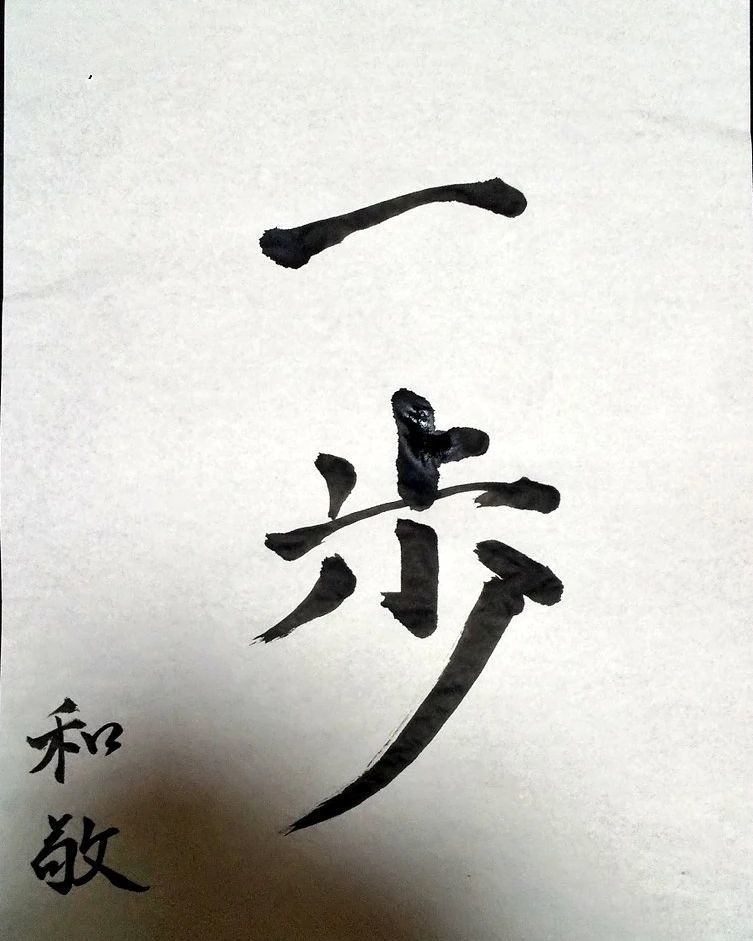 一歩
和敬